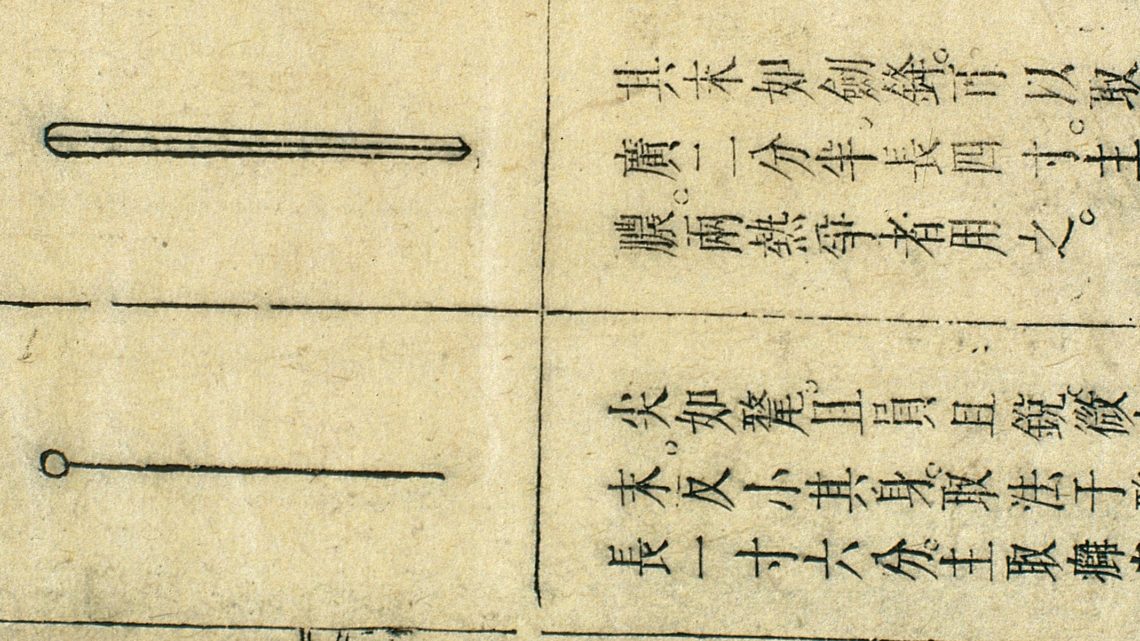 其末如劍鋒。可以取
廣二分半。長四寸。主
膿。兩熱爭者用之。
尖如氂。且員且銳。微
末。反小其身。取法于
長一寸六分。主取癰